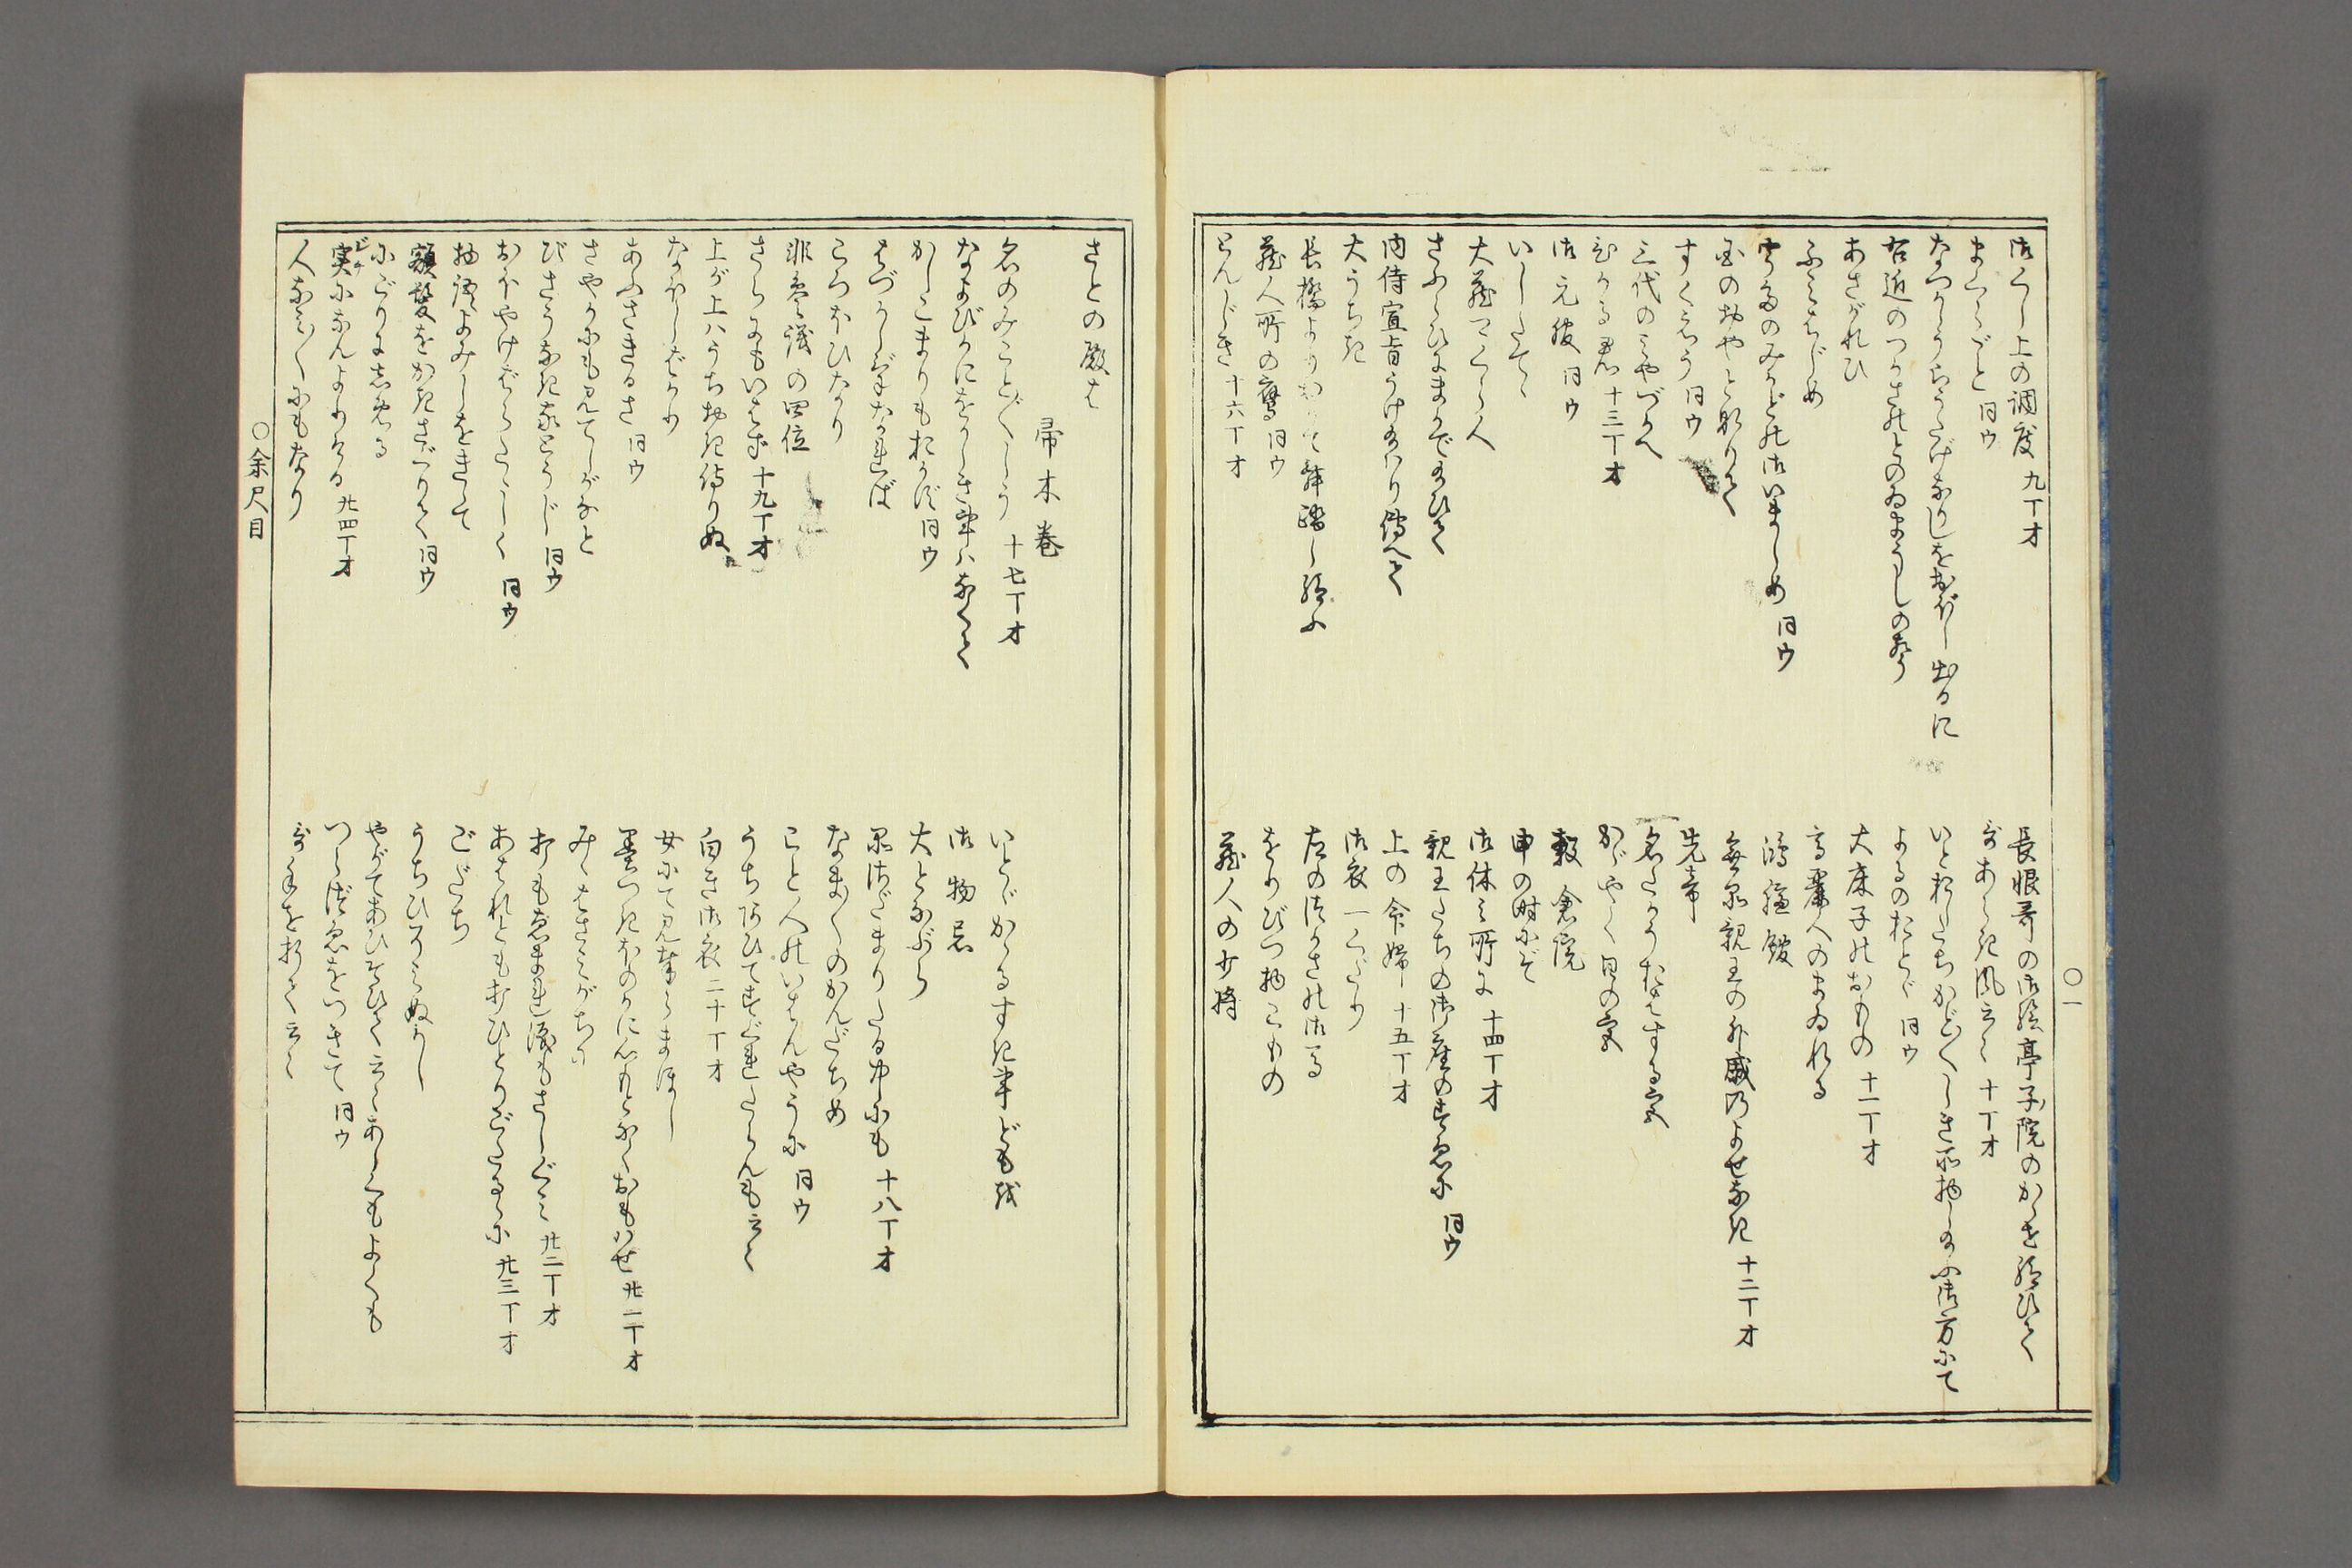 御くし上の調度 九丁オ
長恨哥の御絵亭子院のかゝせ給ひて
まくらごと 同ウ
野あらき風云々 十丁オ
なつかしうらうたげなりしをおぼし出るに
いとおしたちかど〳〵しき所物し給ふ御方にて
右近のつかさのとのゐまうしのこゑ
よるのおとゞ 同ウ
あさがれひ
大床子のおもの 十一丁オ
ふみはじめ
高麗人のまゐれる
宇多のみかどの御いましめ 同ウ
鴻臚館
国のおやと成りて
無品親王の外戚のよせなき 十二丁オ
すくえう 同ウ
先帝
三代のみやづかへ
名たかうおはする宮
ひかる君 十三丁オ
かゞやく日の宮
御元服 同ウ
穀倉院
いしたてゝ
申の時にぞ
大蔵つくら人
御休み所に 十四丁オ
さふらひにまかで給ひて
親王たちの御座のすゑに 同ウ
内侍宣旨うけ給はり傳へて
上の命婦 十五丁オ
大うちき
御衣一くだり
長橋よりおりて舞踏し給ふ
左のつかさの御馬
蔵人所の鷹 同ウ
をりびつ物こもの
とんじき 十六丁オ
蔵人の少将
〇一
さとの殿は
帚木巻
名のみこと〴〵しう 十七丁オ
いとゞかゝるすき事どもを
なよびかにをかしき事はなくて
御物忌
かしこまりもおかず 同ウ
大となぶら
はづかしげなければ
品さだまりたる中にも 十八丁オ
こゝろおひなり
なま〳〵のかんだちめ
非参議の四位
こと人のいはんやうに 同ウ
さらにもいはず 十九丁オ
うちあひてすぐれたらんも云々
上が上はうちおき侍りぬ
白き御衣 二十丁オ
なほしばかり
女にて見奉らまほし
あふさきるさ 同ウ
墨つきほのかに心もとなくおもはせ 廿一丁オ
さやかにも見てしがなと
みゝはさみがちに
びさうなき家とうじ 同ウ
おもなまれ涙もさしぐみ 廿二丁オ
おほやけばらたゝしく 同ウ
あはれともおひとりごたるゝに 廿三丁オ
物語よみしをきゝて
ごだち
額髪をかきさぐりて 同ウ
うちひそみぬかし
にごりにしめる
やがてあひそひて云々あらんもよくも
実になんよりける 廿四丁オ
つらづゑをつきて 同ウ
人なみ〳〵にもなり
手を折て云々
〇余尺目